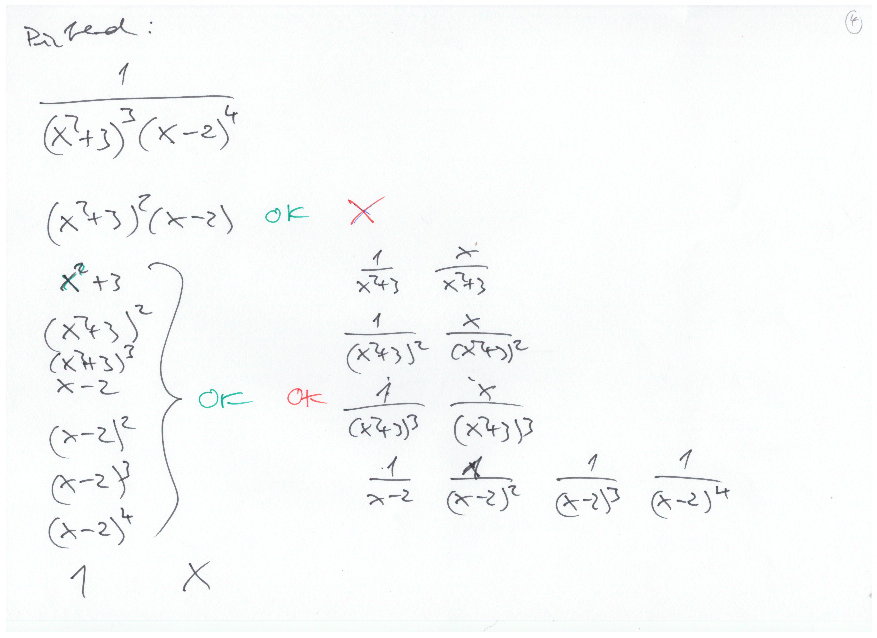 Příklad:
4
1
(x²+3)³(x-2)⁴
(x²+3)²(x-2) OK X
x²+3
(x²+3)²
(x²+3)³
x-2
(x-2)²
(x-2)³
(x-2)⁴
OK OK
1/(x²+3) x/(x²+3)
1/(x²+3)² x/(x²+3)²
1/(x²+3)³ x/(x²+3)³
1/(x-2) 1/(x-2)² 1/(x-2)³ 1/(x-2)⁴
1 X